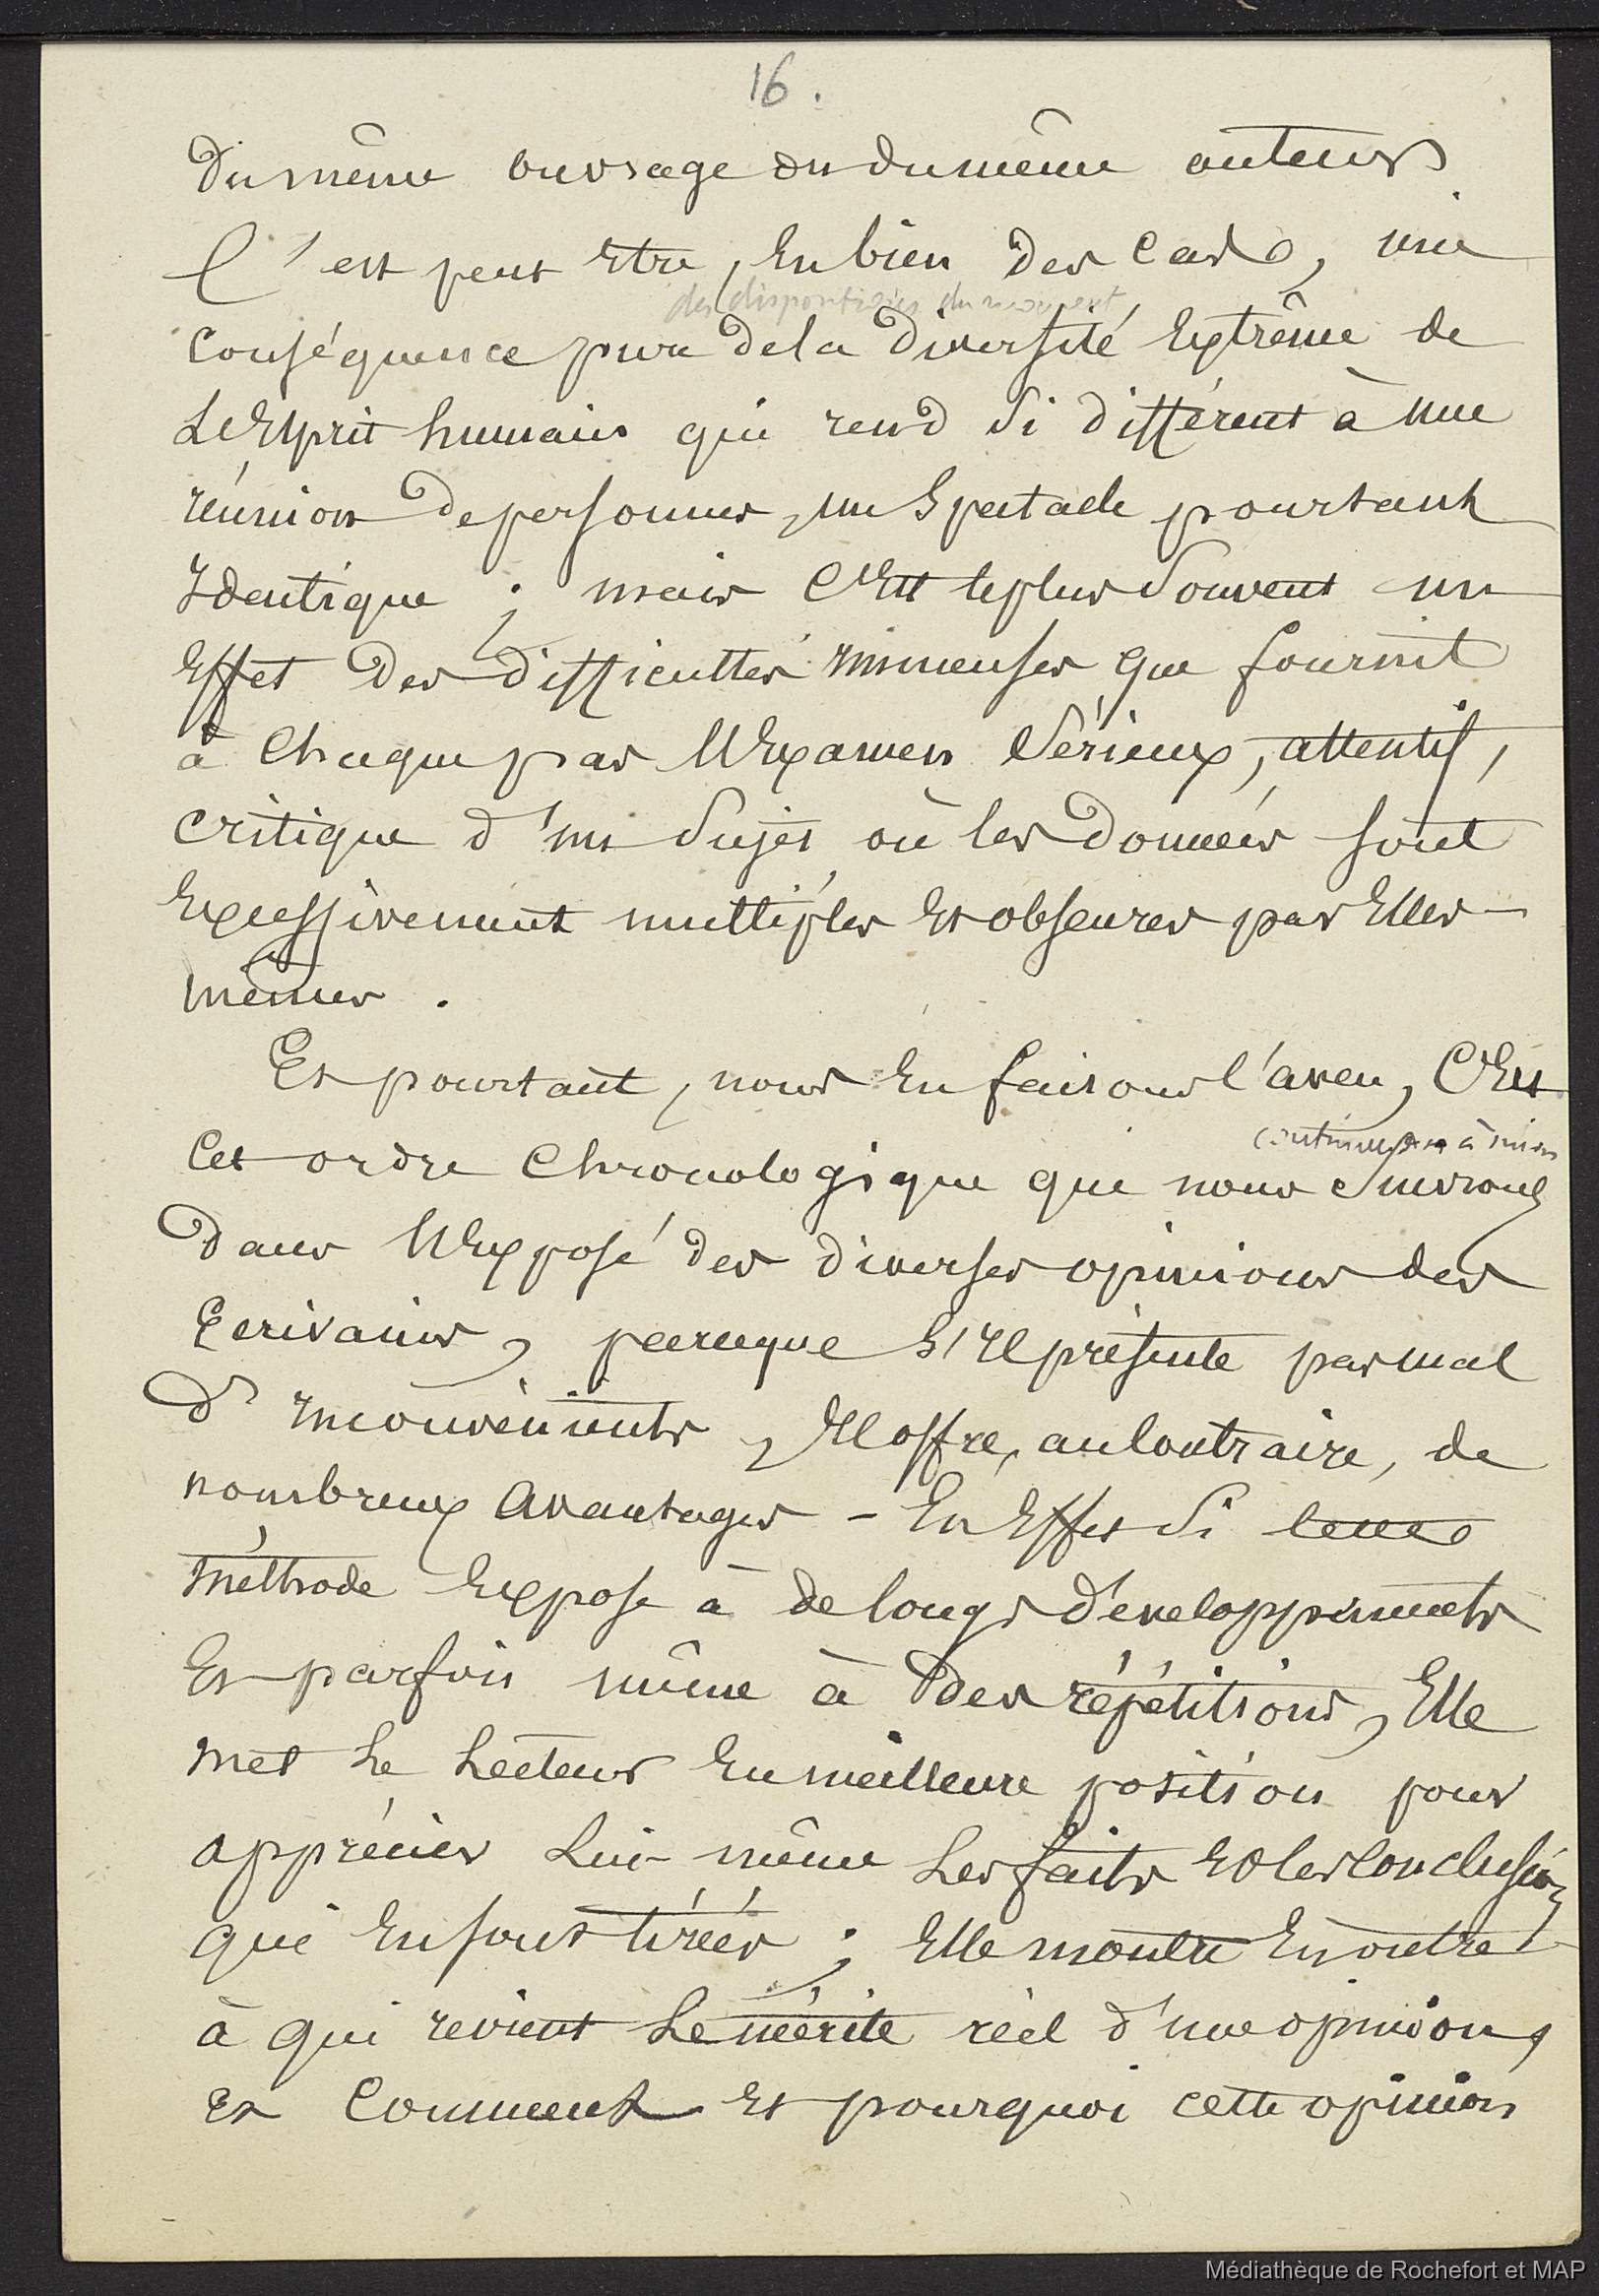 16.
du même ouvrage ou du même auteur
C'est peut être, en bien des cas, une
des dispositions du moment
conséquence pure de la diversité extrême de
L'esprit humain qui rend si différent à une
réunion de personnes, un spectacle pourtant
Identique ; mais c'est le plus souvent un
Effet des difficultés immenses que fournit
à chaque pas l'examen sérieux, attentif,
critique d'un sujet où les données sont
Excessivement multiples et obscures par elles-
mêmes.
Et pourtant, nous en faisons l'aveu, c'est
à suivre
Cet ordre chronologique que nous suivrons
dans l'exposé des diverses opinions des
Ecrivains, parceque s'il présente pas mal
d'inconvénients, Il offre, au contraire, de
nombreux avantages - En effet si cette
méthode expose à de longs développements
Et parfois même à des répétitions, Elle
met Le Lecteur en meilleure position pour
apprécier Lui-même Les faits et les conclusions
qui en sont tirées ; Elle montre en outre
à qui revient Le mérite réel d'une opinion,
et comment et pourquoi cette opinion
Médiathèque de Rochefort et MAP